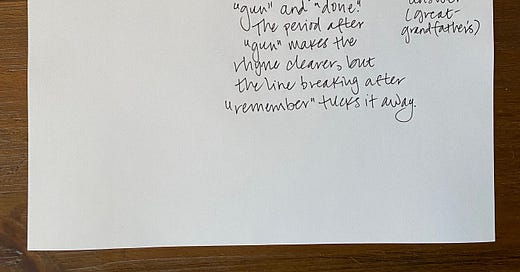 "gun" and "done."
The period after
"gun" makes the
rhyme clearer, but
the line breaking after
"remember" tucks it away.
answer
(great-
grandfather's)